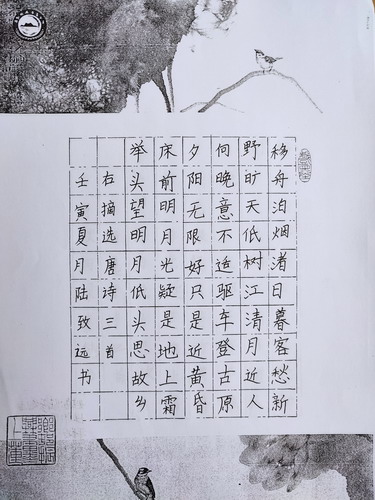 移舟泊烟渚日暮客愁新
野旷天低树江清月近人
向晚意不适驱车登古原
夕阳无限好只是近黄昏
床前明月光疑是地上霜
举头望明月低头思故乡
右摘选唐诗三首
壬寅夏月陆致远书